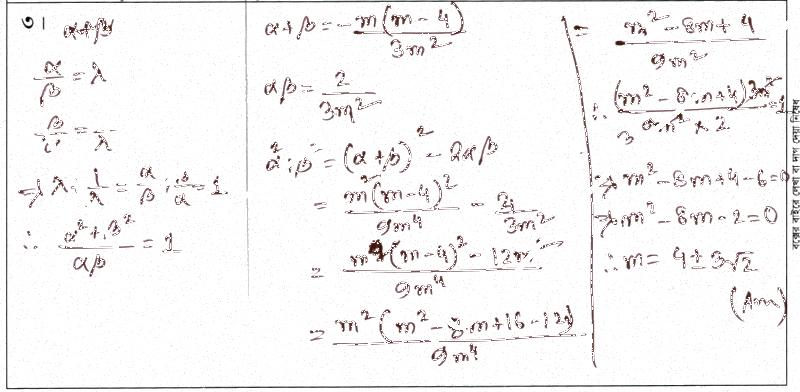 ৩।
α+β
α/β = λ
β/α = 1/λ
⇒ λ + 1/λ = α/β + β/α = 1
∴ (α²+β²)/αβ = 1
α+β = -m(m-4)/3m²
αβ = 2/3m²
α²+β² = (α+β)² - 2αβ
= m²(m-4)²/9m⁴ - 4/3m²
= (m²(m-4)² - 12m²)/9m⁴
= m²(m²-8m+16-12)/9m⁴
= (m²-8m+4)/9m²
∴ (m²-8m+4)3m²/(9m²×2) = 1
⇒ m²-8m+4-6=0
⇒ m²-8m-2=0
∴ m = 4±3√2
(Ans)
বক্সের বাইরে লেখা বা দাগ দেয়া নিষেধ